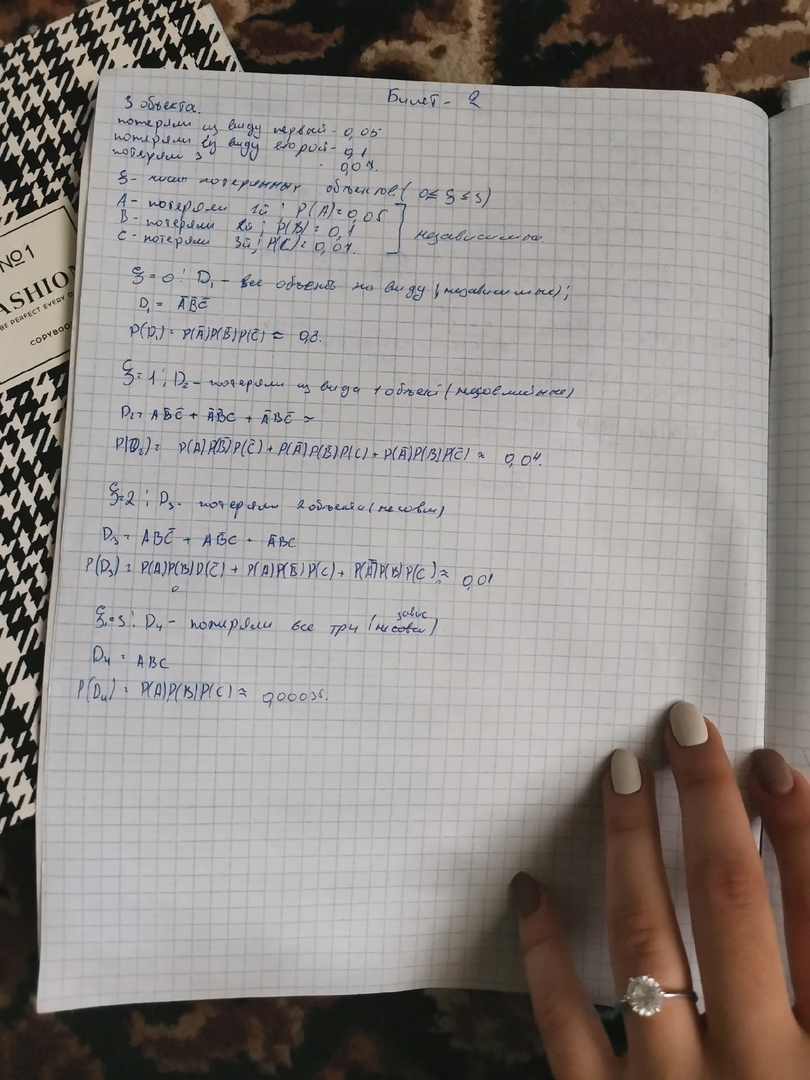 Билет - 2
3 объекта.
потеряли из виду первый - 0,05
потеряли из виду второй - 0,1
потеряли 3 - 0,07.
ξ - число потерянных объектов. ( 0≤ ξ ≤ 3)
A - потеряли 1й ; P(A)=0,05
B - потеряли 2й ; P(B) = 0,1
C - потеряли 3й ; P(C) = 0,07.
независимые.
ξ = 0 ; D₁ - все объекты на виду (независимые);
D₁ = A̅B̅C̅
P(D₁) = P(A̅)P(B̅)P(C̅) ≈ 0,8.
ξ = 1 ; D₂ - потеряли из вида 1 объект
D₂ = AB̅C̅ + A̅B̅C + A̅BC̅ =
P(D₂) = P(A)P(B̅)P(C̅) + P(A̅)P(B̅)P(C) + P(A̅)P(B)P(C̅) ≈ 0,04.
ξ=2 ; D₃ - потеряли 2 объекта (несовм)
D₃ = ABC̅ + AB̅C + A̅BC
P(D₃) = P(A)P(B)P(C̅) + P(A)P(B̅)P(C) + P(A̅)P(B)P(C) ≈ 0,01
ξ=3 ; D₄ - потеряли все три (независ)
D₄ = ABC
P(D₄) = P(A)P(B)P(C) ≈ 0,00035.
№1
FASHION
BE PERFECT EVERY D
COPYBOO